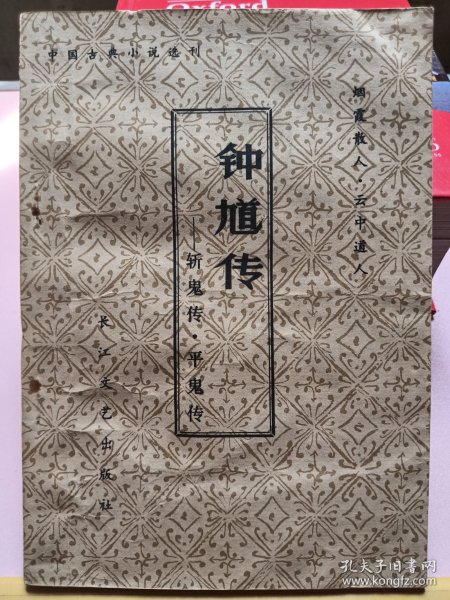 中国古典小说选刊
烟霞散人·云中道人
钟馗传
——斩鬼传·平鬼传
长江文艺出版社
Oxford
孔夫子旧书网
www.kongfz.com